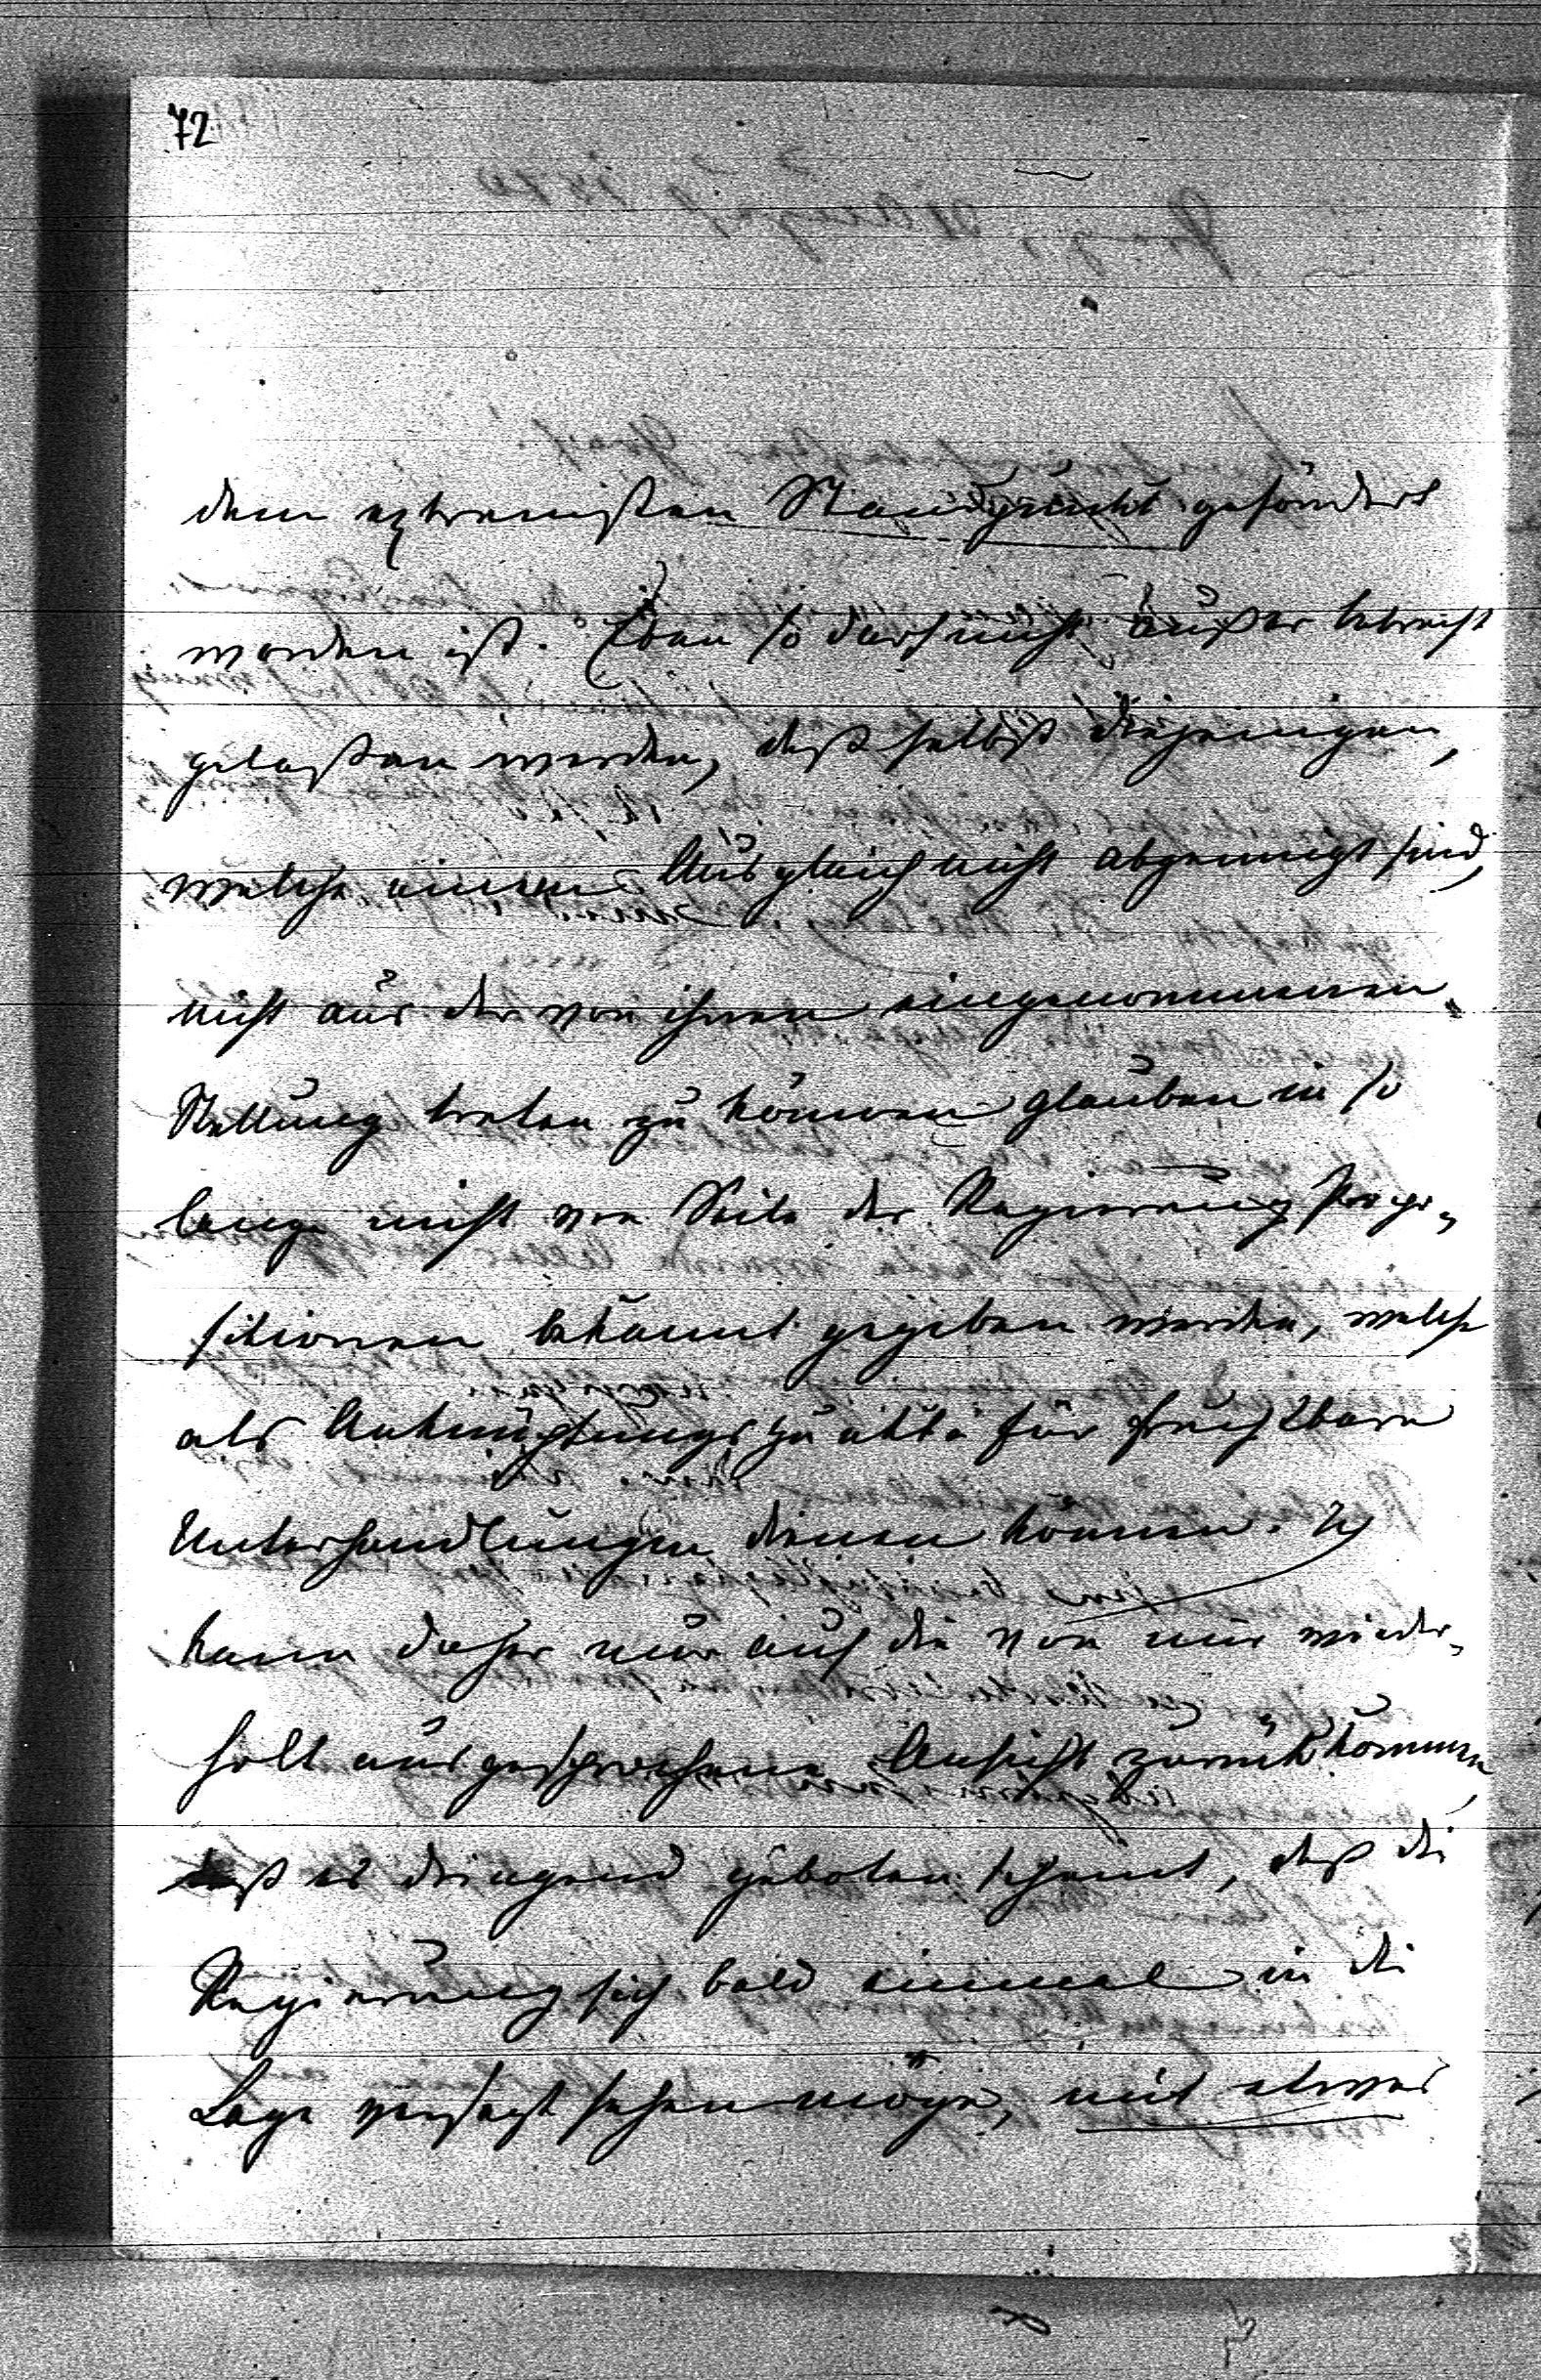 72
dem extremsten Standpunkt gefördert
worden ist. Eben so darf nicht außer Betracht
gelaßen werden, daß selbst diejenigen,
welche einem Ausgleich nicht abgeneigt sind,
nicht aus der von ihnen eingenommenen
Stellung treten zu können glauben in so
lange nicht von Seite der Regierung Propo-
sitionen bekannt gegeben werden, welche
als Anknüpfungspunkte für fruchtbare
Unterhandlungen dienen können. Ich
kann daher nur auf die von mir wieder-
holt ausgesprochene Ansicht zurükkommen,
daß es dringend geboten scheint, daß die
Regierung sich bald einmal in die
Lage versezt sehen möge, mit etwas